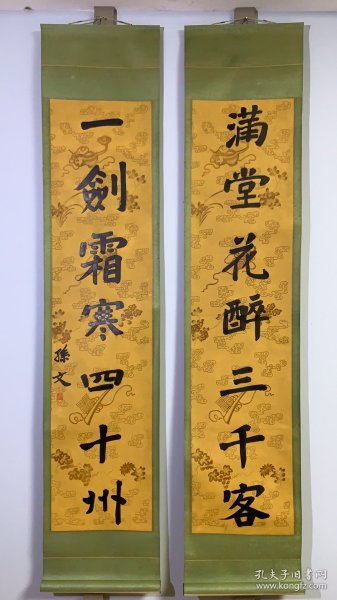 满堂花醉三千客
一劍霜寒四十州
孫文
孔夫子旧书网
www.kongfz.com